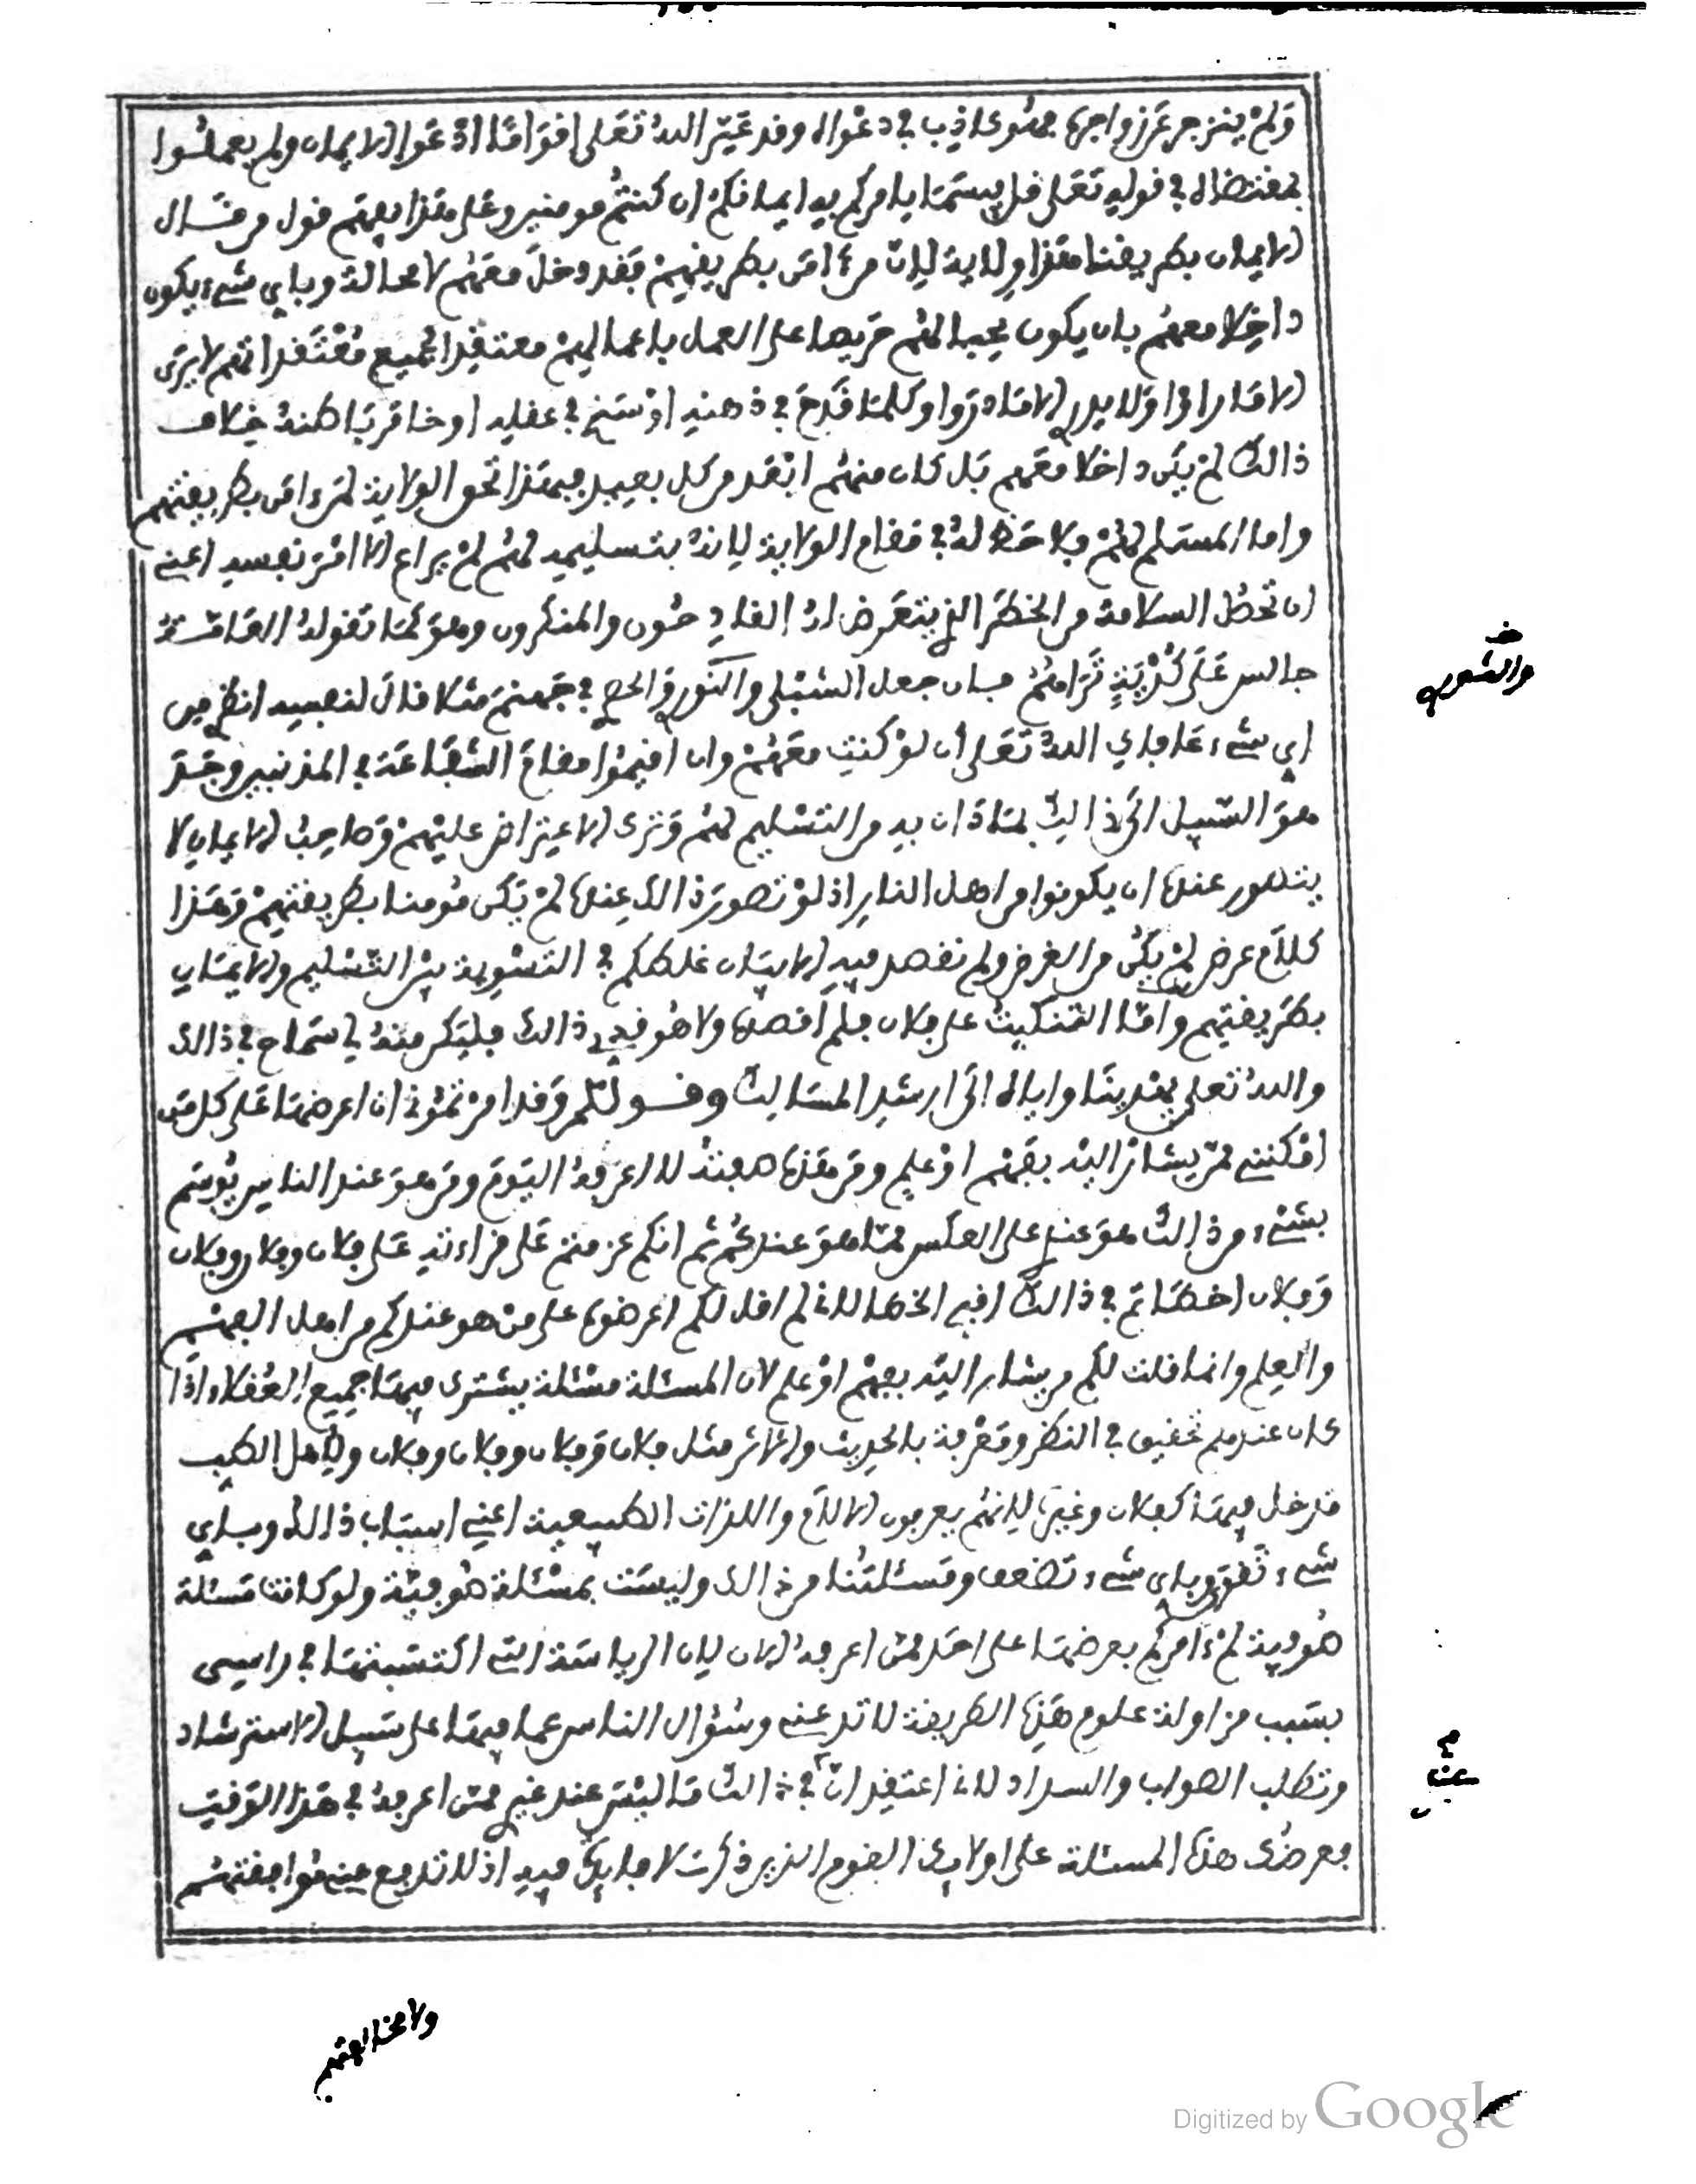 وَلَمْ ينزجر عَن زواجرهِ فهو كاذب في دعواه وفد عَيَّر اللهُ تَعَلى افوَامًا ادَّعَوا الايمان ولم يعملُوا
بمفتضاه في فوله تَعَلى فل بيسَمَا يامركم به ايمانكمْ ان كنتُم مومنين وعلى هَذا يفهم فول من فَال
الايمان بطريفنا هَذا وِلاية لِانّ من ءامَن بطريفهِمْ فَفد دخلَ معَهُم لا محالة وباي شيء يكون
داخِلا معهُم بان يكون محبا لهُم حَريصا على العمل باعمالهِمْ معتفِدا لجميع مُعْتَفَداتهم لا يرَى
الا مَا راوا وَلا يدري الا مَا دَروا وكلمَا فَدَحَ في ذهنهِ اوْ سَنح في عفلِه اوخَامَرَ باطنهُ خِلاف
ذالك لمْ يَكن داخلا معَهم بَل كان منهُم ابْعَد من كل بعِيد فبهَذا نحو الولاية لمن ءامَن بطريفتهم
واما المسَلم لهُمْ فلا حَظ لهُ في مَفام الولاية لِانهُ بتسليمه لهُم لمْ يراع الّا امْرَ نفسه اعني
ان تحصُل السلامة من الخطَر الذي يتعَرض له الفادِحُون والمنكرون وهو كمَا تفولهُ العَامّة
جالس عَلَى كُدْيَةِ سَلَامَتُهُ فبان جعل الشبْلى والنّوري والحصري في جَهنمَ مثَلا فالَ لنفسِه انظري من
اي شيء عَافاك اللهُ تَعَلى ان لوْ كنتِ معَهُمْ وان افيمُوا مفامَ الشفاعَة في المذنبين وجَدَ
هوَ السّبيل الَى ذالك بمَا دَان به من التسْليم لهُم وَترك الاعتراض عليْهمْ وَصاحبُ الايمانِ لا
يتصور عندهُ ان يكونوا من اهل النارِ اذ لوْ تصورَ ذالك عندهُ لمْ يَكن مُومنا بطريفتِهِمْ وَهَذا
كلام عرض لمْ يكن من الغرض ولم نفصد فيهِ الا بيَان غلطكم في التسْوية بيْن التّسْليم والايمَان
بطَريفتِهم وامّا التنكيتُ على فلان فلم افصدهُ ولا هُو في ذالك فليَكن منهُ في سَماح في ذالك
واللهُ تعلى يهْدينَا واياه الَى ارشد المسَالك وفولكُم وَفد امرْتمُوني ان اعرضهَا عَلى كل من
امْكنني ممن يشار اليْه بفَهْم اوْ علمٍ ومن هَذه صفتهُ لا اعرفهُ اليَوم ومن هوَ عند الناسِ يُوسَم
بشَيْء من ذالك هوَ عندي على العكس ممّا هوَ عندكُم ثم انكم عزمتم عَلى فراءته عَلى فلان وفلان وفلان
وَفلان اخطَاتم في ذالك افبح الخطا لانى لم افل لكم اعرضوه على منْ هو عندكم من اهل الفهم
والعِلم وانما فلت لكم من يشار اليْه بفهْم اوْ علم لان المسئلة مسْئلة يشترك فيهَا جميع العُفلاء اذا
كان عندهم تحفيق في النظر ومَعْرفة بالحديث والاثر مثل فلان وَفلان وفلان وفلان ولاهل الطب
مَدخل فيهَا كفلان وغيره لِانهُم يعرفون الالام واللذات الطبيعية اعني اسبَاب ذالك وباي
شيء تَفوى وباي شيء تضعف ومَسئلتُنا من ذالك وليسَت بمسْئلة صُوفيّة ولو كانت مَسئلة
صُوفية لمْ ءامركم بعرضهَا على احَد ممن اعرفهُ الان لِان الرياسَة التي اكتسَبتهَا في راسي
بسَبب مزاولة علوم هَذه الطريفة لا تدعني وسُؤال الناس عما فيهَا على سَبيل الاسترشاد
وتطلب الصواب والسداد لانى اعتفِد انّ في ذالك مَا ليْسَ عند غيري ممن اعرفهُ في هَذا الوَفت
فعرضُك هذه المسئلة على اولائك الفوم الذين ذكرت لا فايدة فيه اذ لا تدبع عني مُوافِفتهُم
والحصري
عندي
ولا مخالفتهم
Digitized by Google